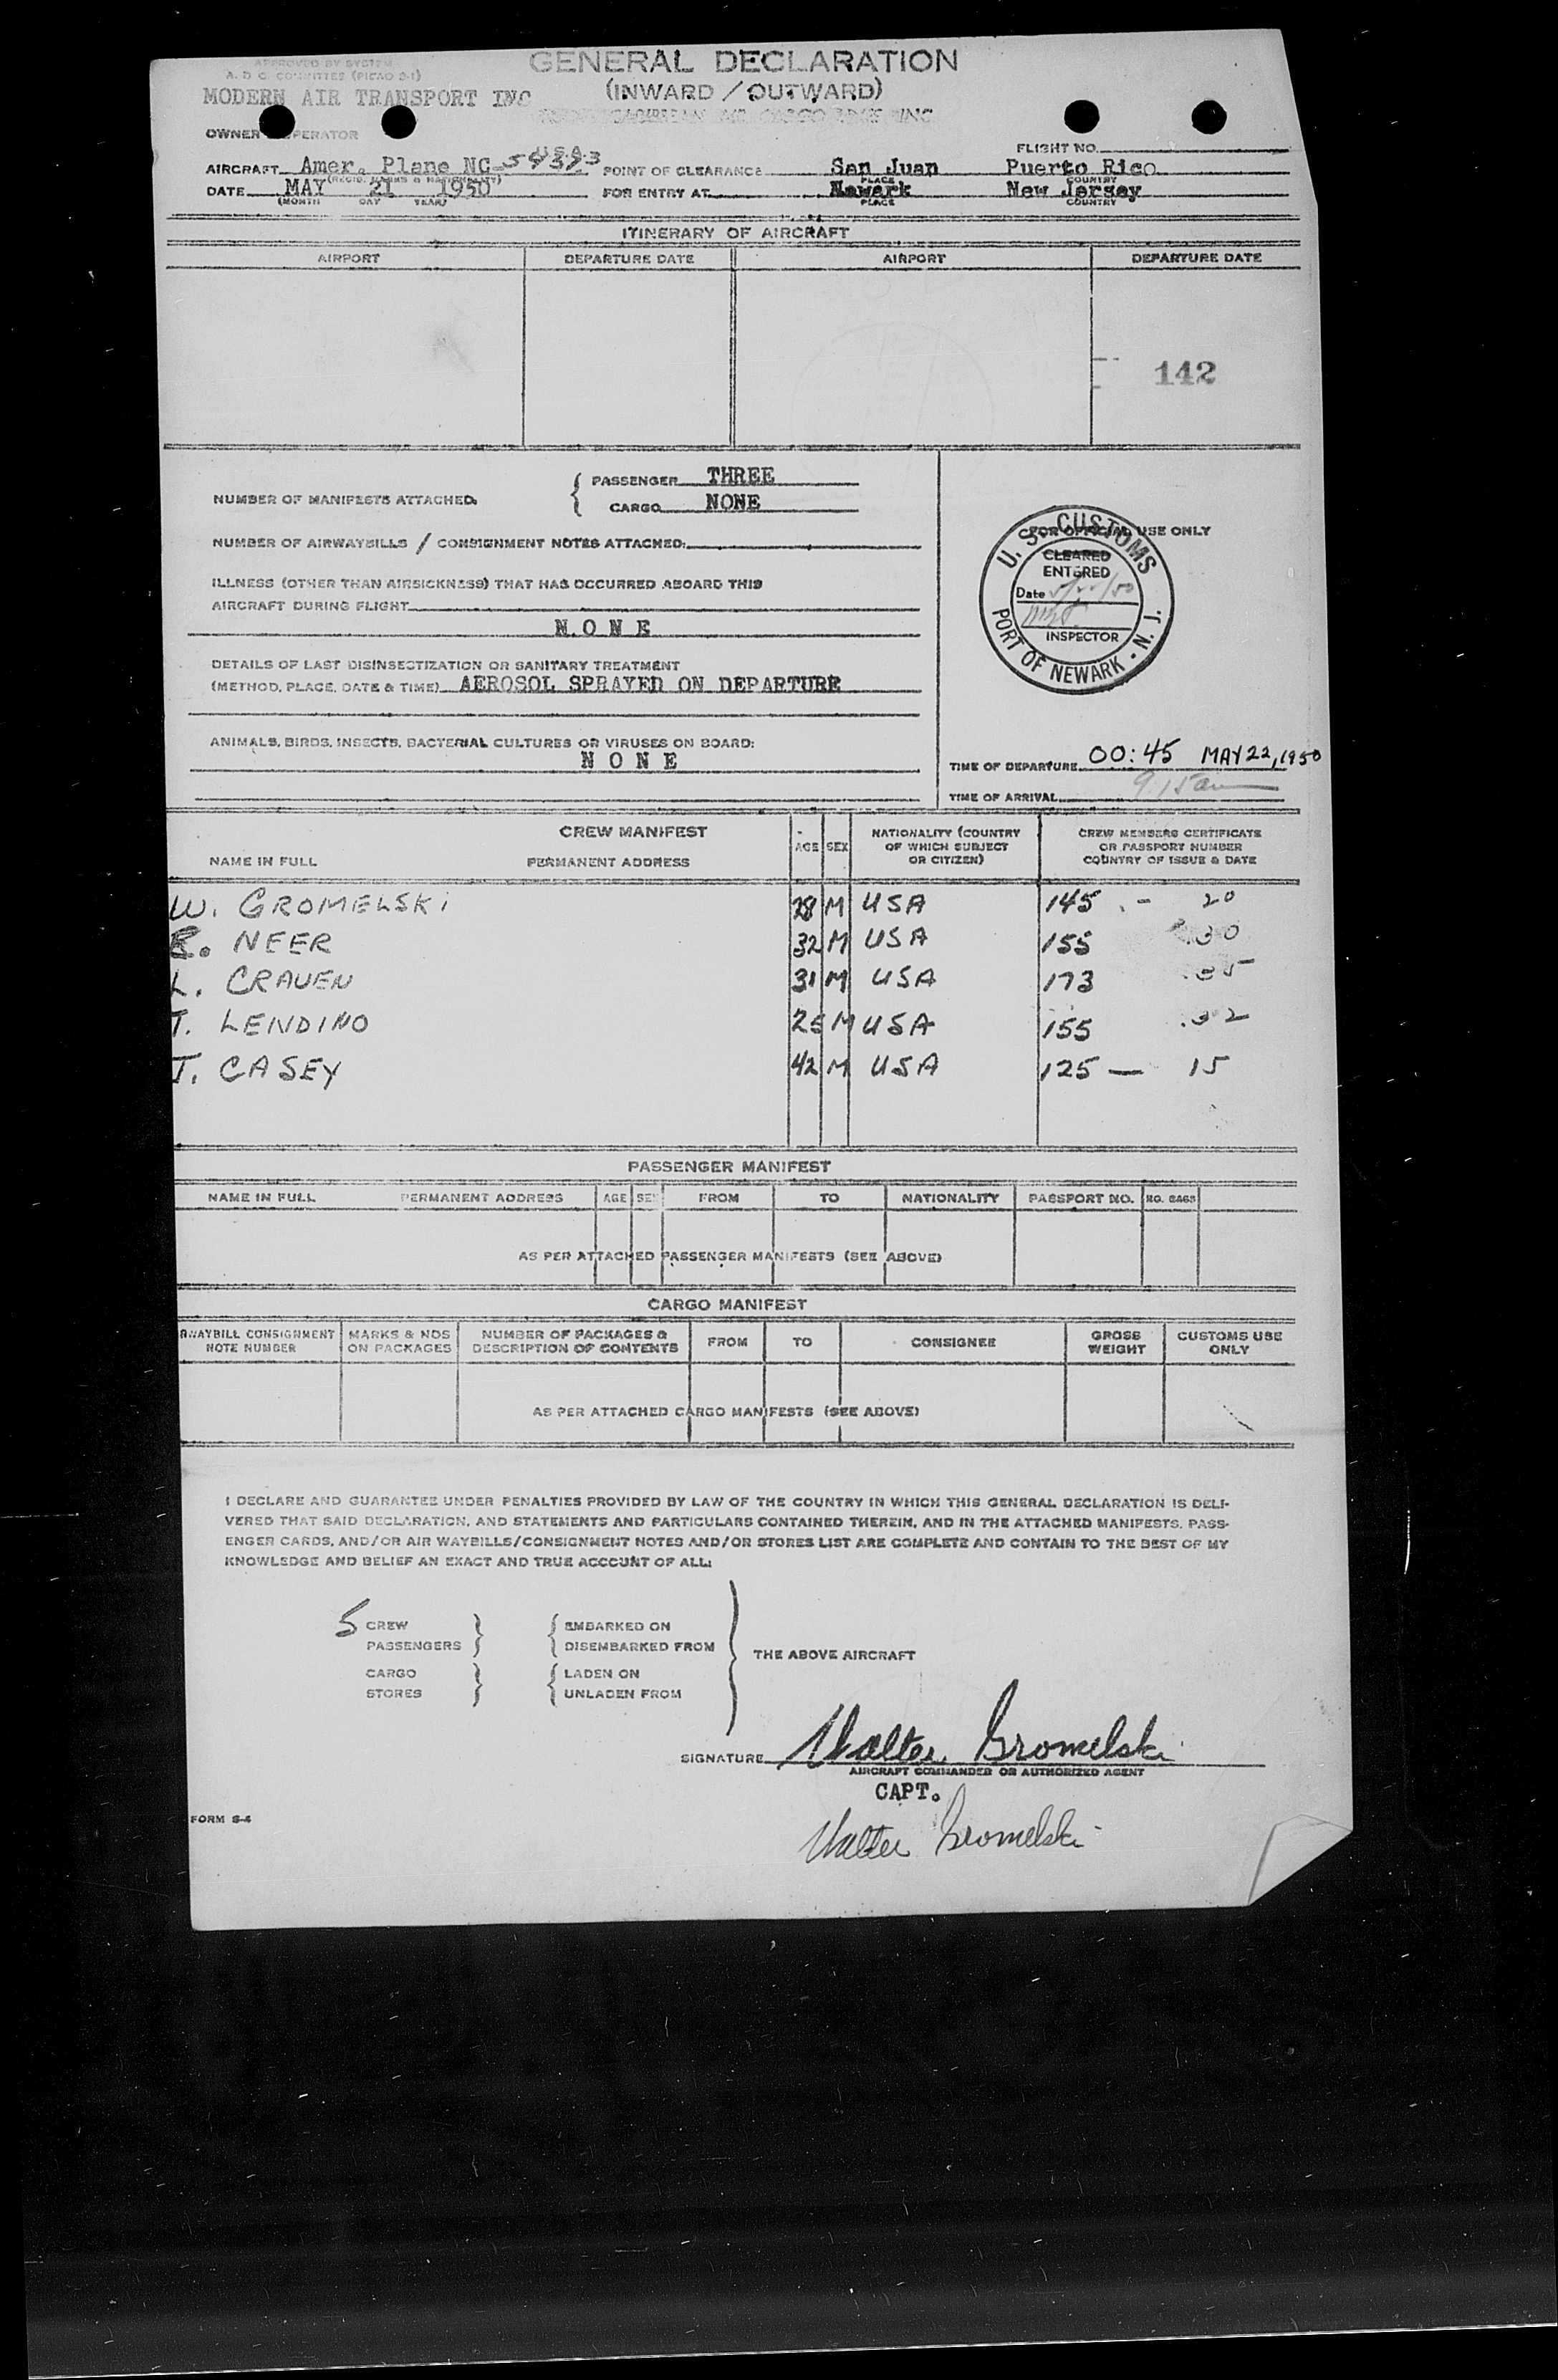 APPROVED BY SYSTEM
A. D. C. COMMITTEE (PICAO 2-1)
GENERAL DECLARATION
(INWARD / OUTWARD)
MODERN AIR TRANSPORT INC
OWNER OPERATOR
FLIGHT NO.
AIRCRAFT Amer. Plane NC- USA POINT OF CLEARANCE San Juan Puerto Rico
(REGIS. MARKS & NATIONALITY) PLACE COUNTRY
DATE MAY 21 1950 FOR ENTRY AT Newark New Jersey
(MONTH DAY YEAR) PLACE COUNTRY
ITINERARY OF AIRCRAFT
AIRPORT DEPARTURE DATE AIRPORT DEPARTURE DATE
142
NUMBER OF MANIFESTS ATTACHED. { PASSENGER THREE
CARGO NONE
FOR OFFICIAL USE ONLY
U. S. CUSTOMS
CLEARED
ENTERED
Date
INSPECTOR
PORT OF NEWARK - N. J.
NUMBER OF AIRWAYBILLS / CONSIGNMENT NOTES ATTACHED:
ILLNESS (OTHER THAN AIRSICKNESS) THAT HAS OCCURRED ABOARD THIS
AIRCRAFT DURING FLIGHT
N O N E
DETAILS OF LAST DISINSECTIZATION OR SANITARY TREATMENT
(METHOD, PLACE, DATE & TIME) AEROSOL SPRAYED ON DEPARTURE
ANIMALS, BIRDS, INSECTS, BACTERIAL CULTURES OR VIRUSES ON BOARD:
N O N E
TIME OF DEPARTURE 00:45 MAY 22, 1950
TIME OF ARRIVAL 9:15am
CREW MANIFEST
NAME IN FULL PERMANENT ADDRESS AGE SEX NATIONALITY (COUNTRY OF WHICH SUBJECT OR CITIZEN) CREW MEMBERS CERTIFICATE OR PASSPORT NUMBER COUNTRY OF ISSUE & DATE
W. GROMELSKI 28 M USA 145 - 20
NEER 32 M USA 155 30
L. CRAVEN 31 M USA 173
T. LENDINO 25 M USA 155 32
T. CASEY 42 M USA 125 — 15
PASSENGER MANIFEST
NAME IN FULL PERMANENT ADDRESS AGE SEX FROM TO NATIONALITY PASSPORT NO. NO. BAGS
AS PER ATTACHED PASSENGER MANIFESTS (SEE ABOVE)
CARGO MANIFEST
AWAYBILL CONSIGNMENT NOTE NUMBER MARKS & NOS ON PACKAGES NUMBER OF PACKAGES & DESCRIPTION OF CONTENTS FROM TO CONSIGNEE GROSS WEIGHT CUSTOMS USE ONLY
AS PER ATTACHED CARGO MANIFESTS (SEE ABOVE)
I DECLARE AND GUARANTEE UNDER PENALTIES PROVIDED BY LAW OF THE COUNTRY IN WHICH THIS GENERAL DECLARATION IS DELI-
VERED THAT SAID DECLARATION, AND STATEMENTS AND PARTICULARS CONTAINED THEREIN, AND IN THE ATTACHED MANIFESTS, PASS-
ENGER CARDS, AND/OR AIR WAYBILLS/CONSIGNMENT NOTES AND/OR STORES LIST ARE COMPLETE AND CONTAIN TO THE BEST OF MY
KNOWLEDGE AND BELIEF AN EXACT AND TRUE ACCOUNT OF ALL:
5 CREW } { EMBARKED ON
PASSENGERS } { DISEMBARKED FROM
THE ABOVE AIRCRAFT
CARGO } { LADEN ON
STORES } { UNLADEN FROM
SIGNATURE Walter Gromelski
AIRCRAFT COMMANDER OR AUTHORIZED AGENT
CAPT.
FORM S-4
Walter Gromelski